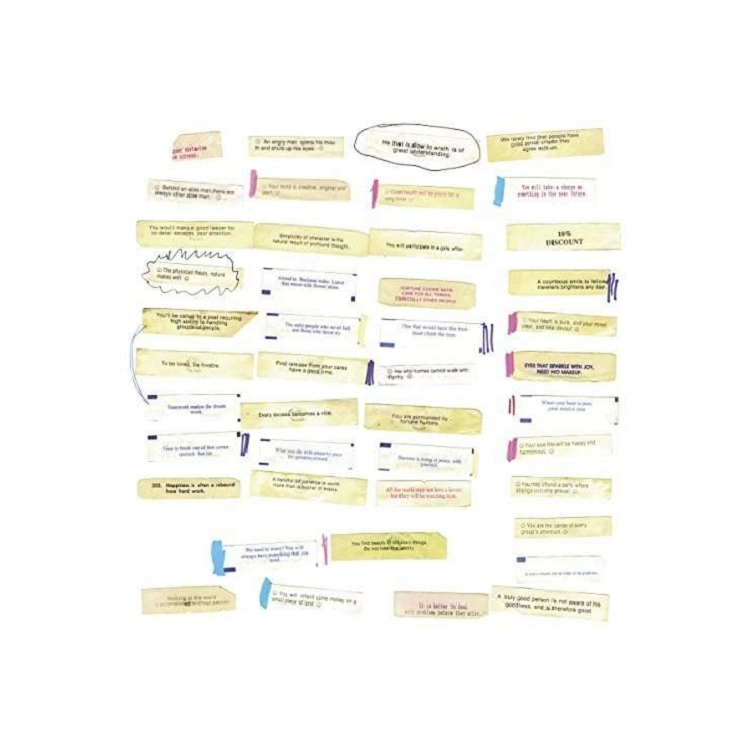 your obstacles
to success.
An angry man opens his mou
th and shuts up his eyes.
He that is slow to wrath is of
great understanding.
We rarely find that people have
good sense unless they
agree with us.
Behind an able man, there are
always other able men.
Your mind is creative, original and
You will take a chance on
something in the near future.
You would make a good lawyer for
no detail escapes your attention.
Simplicity of character is the
natural result of profound thought.
You will participate in a girls affair.
10%
DISCOUNT
The physician heals, nature
makes well.
FORTUNE COOKIE SAYS:
CARE FOR ALL THINGS,
ESPECIALLY OTHER PEOPLE
A courteous smile to fellow
travelers brightens any day.
You'll be called to a post requiring
high ability in handling
groups of people.
One that would have the fruit
must climb the tree.
Your heart is pure, and your mind
clear, and soul devout.
To be loved, be lovable.
Find release from your cares
have a good time.
He who hurries cannot walk with
dignity.
EYES THAT SPARKLE WITH JOY,
NEED NO MAKEUP.
Teamwork makes the dream
work.
Every excess becomes a vice.
You are surrounded by
fortune hunters.
When your heart is pure,
your mind is clear
What you do with sincerity
Success is being at peace with
yourself.
Your love life will be happy and
harmonious.
203. Happiness is often a rebound
from hard work.
A handful of patience is worth
more than a bushel of brains.
All the world may not love a lover
but they will be watching him.
You may attend a party where
strange customs prevail.
You are the center of every
group's attention.
No need to worry! You will
always have everything that you
need.
You find beauty in ordinary things.
Do not lose this ability.
Nothing in the world
is accomplished without passion.
You will inherit some money or a
small piece of land.
It is better to deal
with problems before they arise.
A truly good person is not aware of his
goodness, and is therefore good.